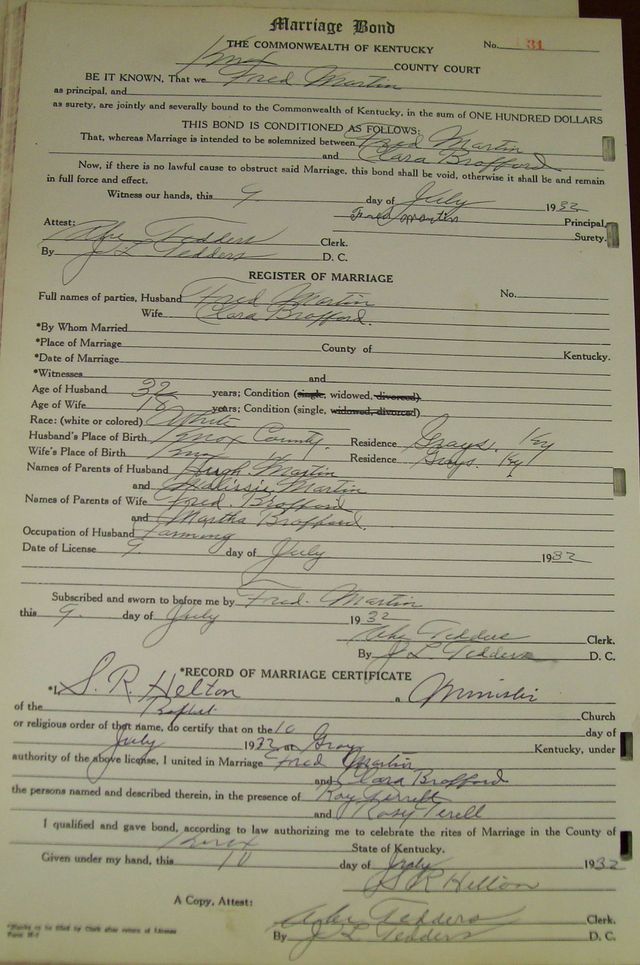 Marriage Bond
THE COMMONWEALTH OF KENTUCKY No. 31
Knox COUNTY COURT
BE IT KNOWN, That we Fred Martin
as principal, and
as surety, are jointly and severally bound to the Commonwealth of Kentucky, in the sum of ONE HUNDRED DOLLARS
THIS BOND IS CONDITIONED AS FOLLOWS:
That, whereas Marriage is intended to be solemnized between Fred Martin
and Clara Brofford
Now, if there is no lawful cause to obstruct said Marriage, this bond shall be void, otherwise it shall be and remain
in full force and effect.
Witness our hands, this 9 day of July 1932
Fred Martin Principal,
Attest: Surety.
Abe Tedders Clerk.
By J L Tedders D. C.
REGISTER OF MARRIAGE
Full names of parties, Husband Fred Martin No.
Wife Clara Brofford.
*By Whom Married
*Place of Marriage County of Kentucky.
*Date of Marriage
*Witnesses and
Age of Husband 32 years; Condition (single, widowed, divorced)
Age of Wife 18 years; Condition (single, widowed, divorced)
Race: (white or colored) White
Husband's Place of Birth Knox County. Residence Grays. Ky
Wife's Place of Birth Knox Residence Grays. Ky
Names of Parents of Husband Hugh Martin
and Martin
Names of Parents of Wife Fred. Brofford
and Martha Brofford.
Occupation of Husband Farming
Date of License 9 day of July 1932
Subscribed and sworn to before me by Fred. Martin
this 9. day of July 1932
Abe Tedders Clerk.
By J L Tedders D. C.
*RECORD OF MARRIAGE CERTIFICATE
*I, S. R. Helton a Minister
of the Baptist Church
or religious order of that name, do certify that on the 10 day of
July 1932 at Gray Kentucky, under
authority of the above license, I united in Marriage Fred Martin
and Clara Brofford
the persons named and described therein, in the presence of Roy
and Rosy Terell
I qualified and gave bond, according to law authorizing me to celebrate the rites of Marriage in the County of
Knox State of Kentucky.
Given under my hand, this 10 day of July 1932
S R Helton
A Copy, Attest:
Abe Tedders Clerk.
By J L Tedders D. C.
*Blanks to be filled by Clerk after return of License